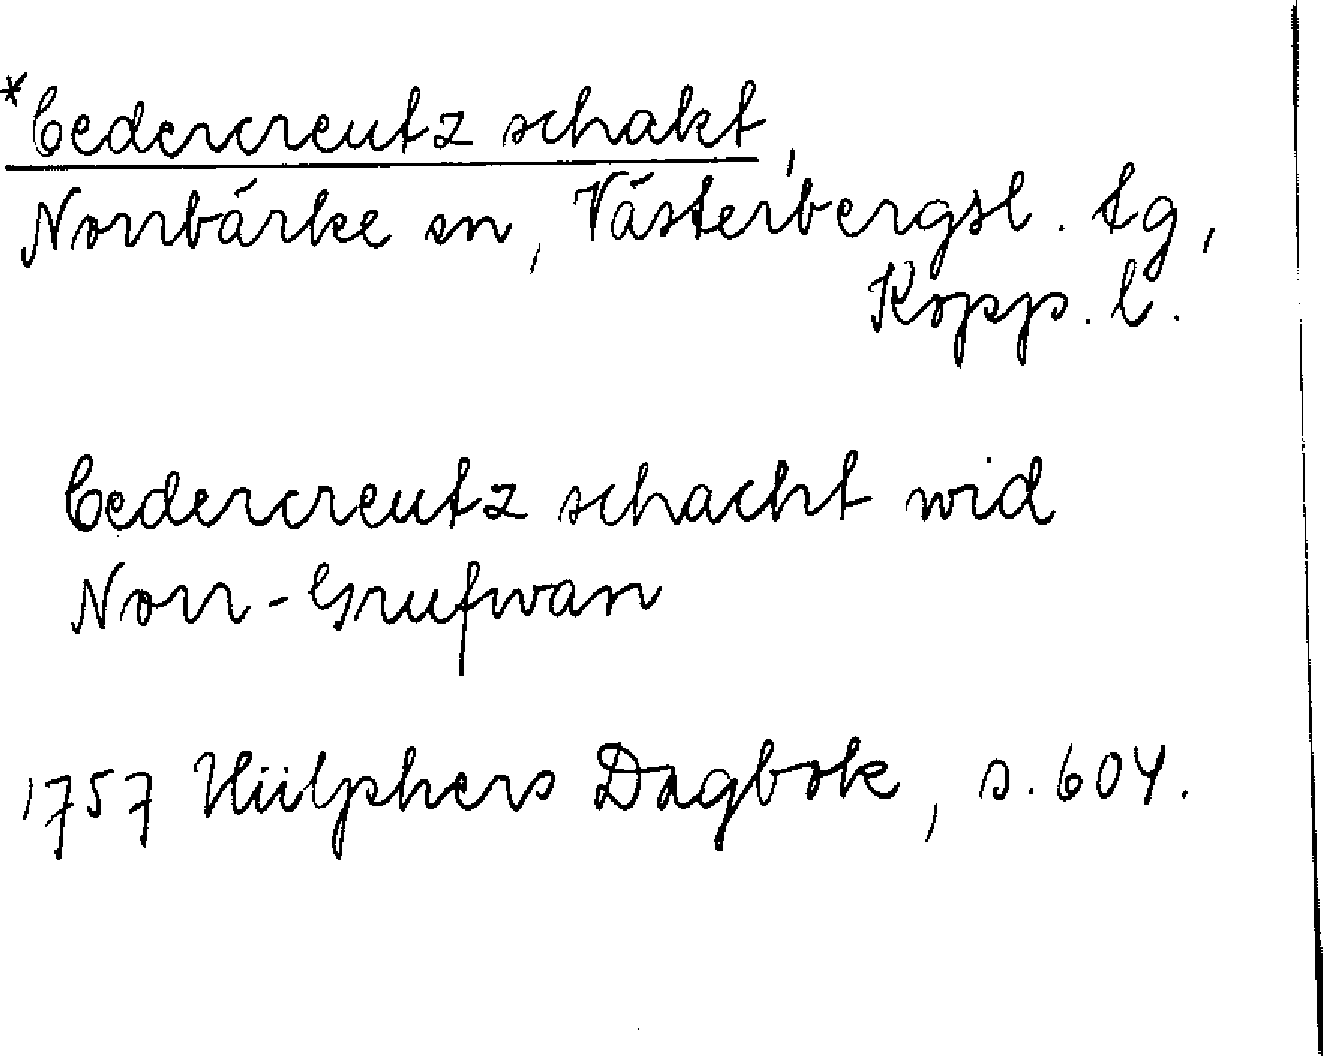 *Cedercreutz schakt,
Norrbärke sn, Västerbergsl. tg,
Kopp. l.
Cedercreutz schacht wid
Norr-Grufwan
1757 Hülphers Dagbok, s. 604.